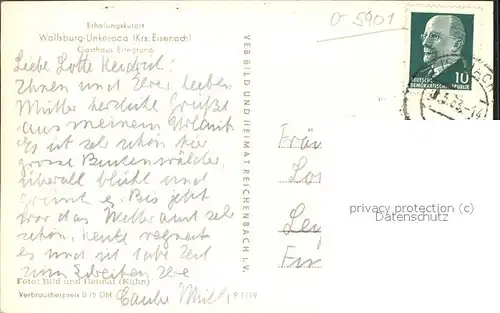 Erholungskurort
Wolfsburg-Unkeroda (Krs. Eisenach)
Gasthaus Ettegrung
Liebe Lotte
Ihnen und Ihrer lieben
Mutter herzliche Grüße
aus meinem Urlaub.
Es ist sehr schön hier
grosse Buchenwälder,
überall blüht und
grünt es. Bis jetzt
war das Wetter auch sehr
schön, heute regnet
es und ist habe Zeit
zum Schreiben. Ihre
Foto: Bild und Heimat (Kühn)
Verbraucherpreis 0,15 DM
9 1119
VEB BILD UND HEIMAT REICHENBACH i. V.
0 5901
DEUTSCHE
DEMOKRATISCHE REPUBLIK
10
Frau
privacy protection (c)
Datenschutz